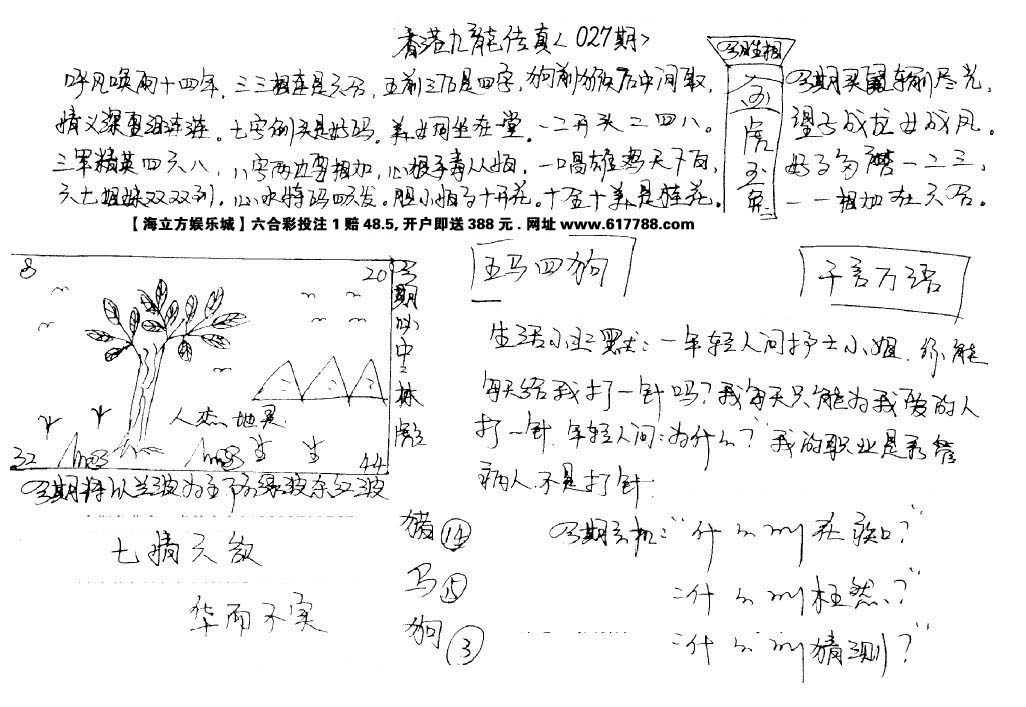 香港九龍传真〈027期〉
呼风唤雨十四年，三三相连是六合，五前三后是四字，狗前猴后中间取，
情义深重 连连。七字倒头是好码。 女同坐在一堂。一二开头二四八。
三军精英四六八，八字两边要相加，心狠手毒从 ，一唱雄鸡天下白，
六七姐妹双双到，心水特码四六发。胆小 十开花。十至十 是桂花。
今期生相
金
虎
玉
兔
今期买 尽光，
望子成龙女成凤。
好了多 一二三，
一一相加在六合。
【海立方娱乐城】六合彩投注 1 赔 48.5, 开户即送 388 元 . 网址 www.617788.com
8
20
人杰地灵
32
44
今期必中 林
今期特以兰波为主下防绿波杀红波
七情六欲
华而不实
猪 14
马 15
狗 3
五马四狗
千言万语
生活小幽默：一年轻人问护士小姐，你能
每天给我打一针吗？我每天只能为我爱的人
打一针，年轻人问：为什么？我的职业是看管
病人，不是打针
今期玄机：“什么叫 ？”
“什么叫枉然？”
“什么叫猜测？”